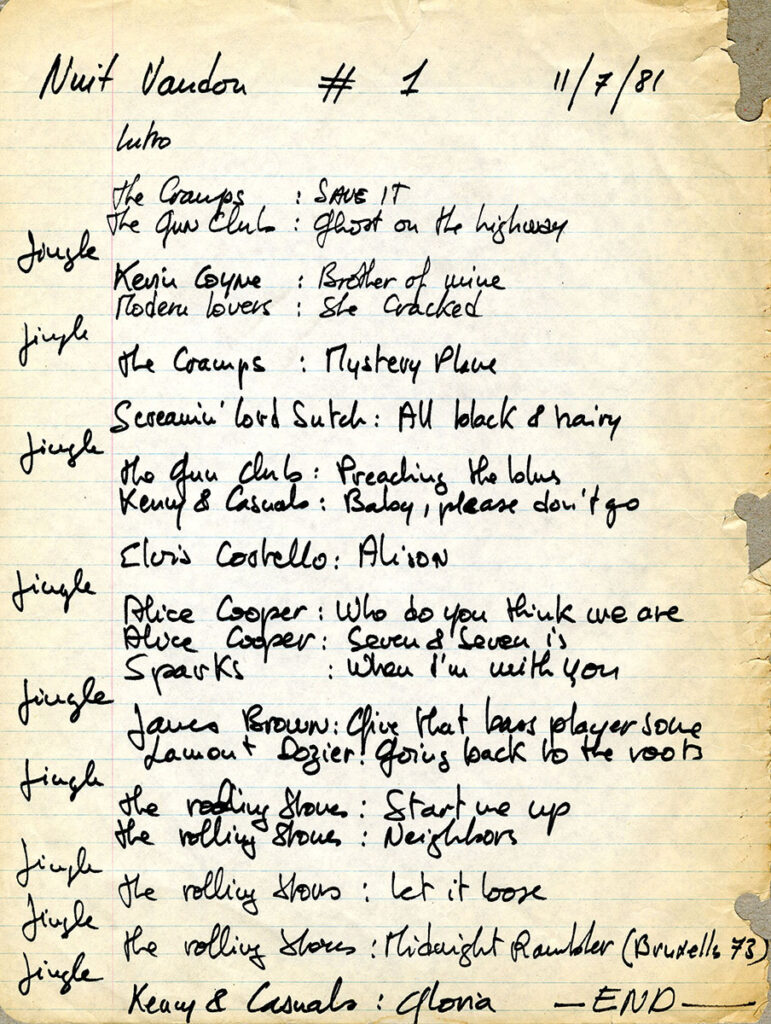 Nuit Vaudou # 1 11/7/81
Intro
The Cramps : SAVE IT
The Gun Club : Ghost on the highway
Jingle
Kevin Coyne : Brother of mine
Modern lovers : She Cracked
Jingle
The Cramps : Mystery Plane
Screamin' lord Sutch : All black & hairy
Jingle
The Gun Club : Preaching the blues
Kenny & Casuals : Baby, please don't go
Elvis Costello : Alison
Jingle
Alice Cooper : Who do you think we are
Alice Cooper : Seven & Seven is
Sparks : When I'm with you
Jingle
James Brown : Give that bass player some
Lamont Dozier : Going back to the roots
Jingle
The rolling Stones : Start me up
The rolling Stones : Neighbors
Jingle
The rolling Stones : Let it loose
Jingle
The rolling Stones : Midnight Rambler (Bruxelles 73)
Jingle
Kenny & Casuals : Gloria — END —